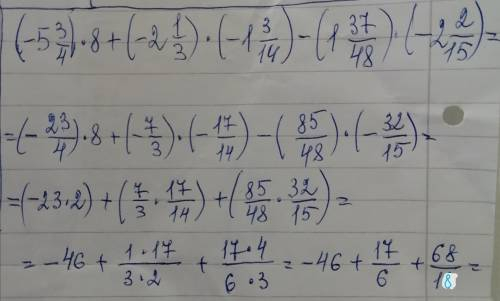 (-5 3/4)·8 + (-2 1/3)·(-1 3/14) - (1 37/48)·(-2 2/15) =
= (-23/4)·8 + (-7/3)·(-17/14) - (85/48)·(-32/15) =
= (-23·2) + (7/3 · 17/14) + (85/48 · 32/15) =
= -46 + 1·17/3·2 + 17·4/6·3 = -46 + 17/6 + 68/18 =